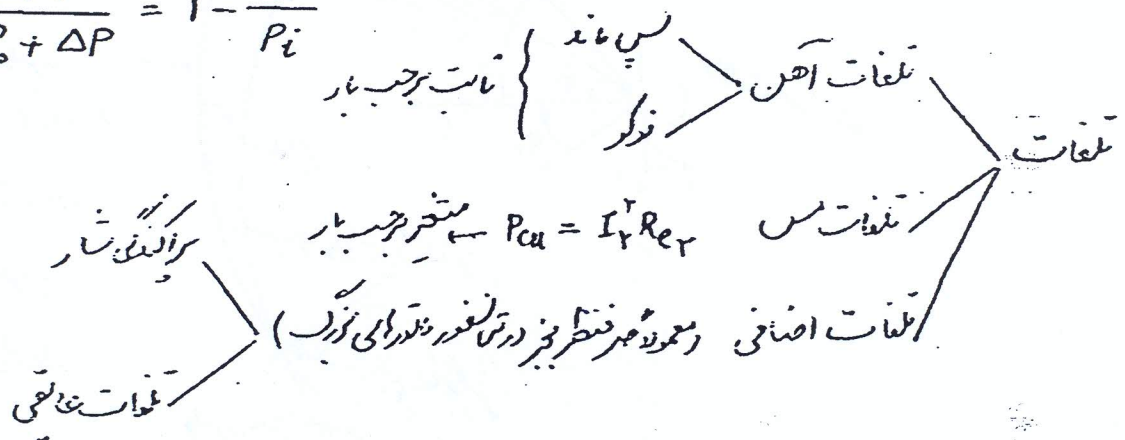 P₀ + ΔP = 1 - Pi
تلفات
تلفات آهن
پس ماند
فوکو
ثابت برحسب بار
تلفات مس Pcu = I₂² Re₂ ← متغیر برحسب بار
تلفات اضافی (معمولاً صرفنظر بجز در ترانسفورماتورهای بزرگ)
پراکندگی شار
تلفات عایقی